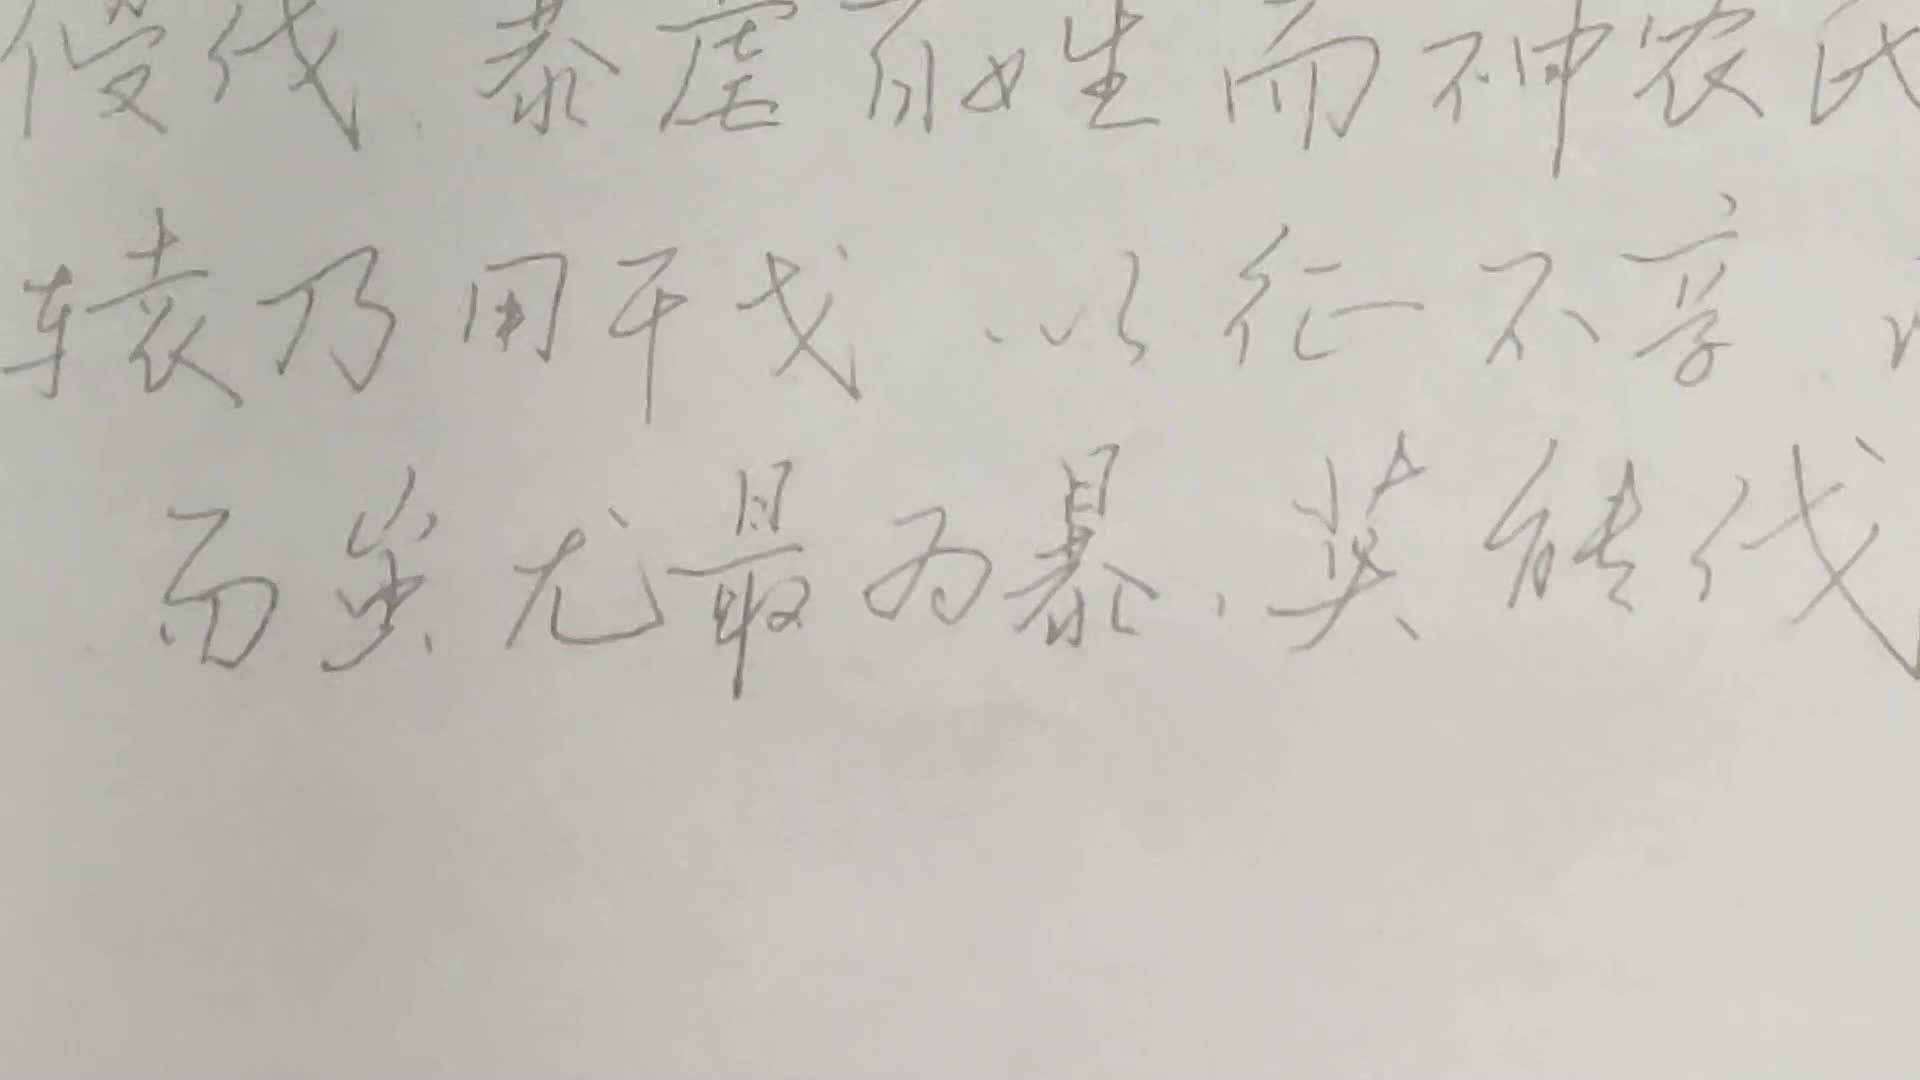 侵伐、暴虐百姓而神农氏
辕乃用干戈、以征不享、
而蚩尤最为暴、莫能伐